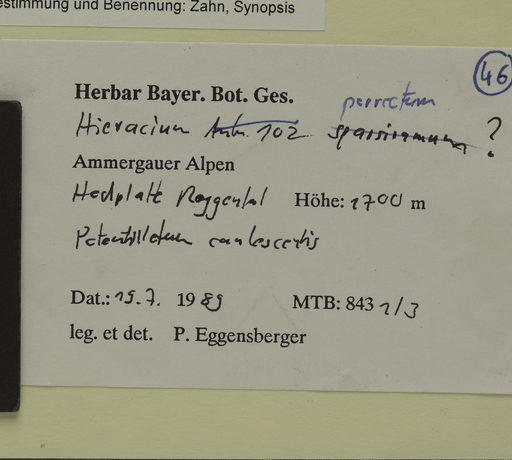 estimmung und Benennung: Zahn, Synopsis
46
Herbar Bayer. Bot. Ges.
Hieracium 102 sparsiramum ?
Ammergauer Alpen
Hochplatte Roggental Höhe: 1700 m
Potentilletum caulescentis
Dat.: 15.7. 1989 MTB: 8431/3
leg. et det. P. Eggensberger